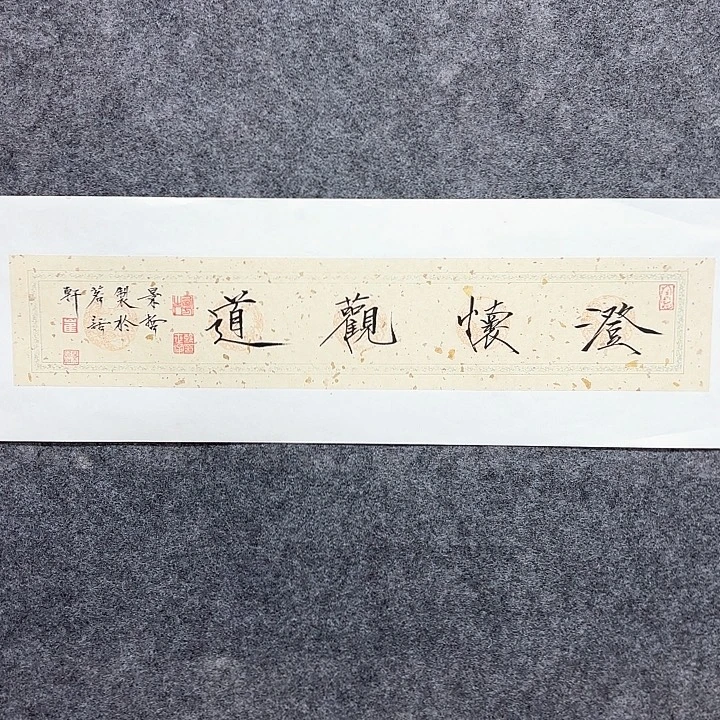 澄懷觀道
景哲
製於
茗語
軒